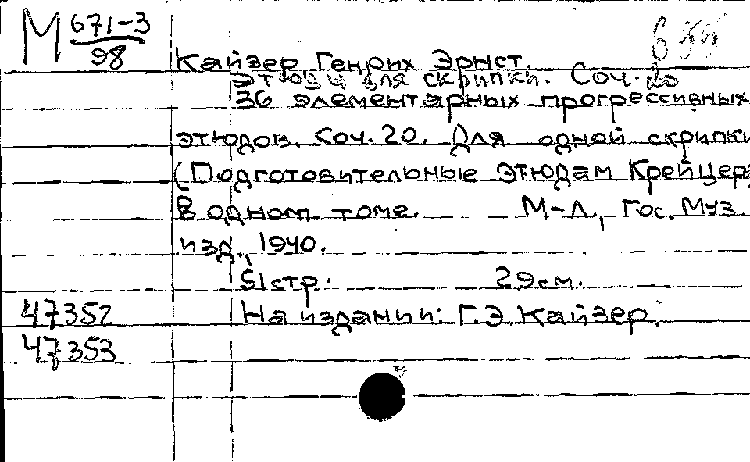 М 671-3
98
Кайзер Генрих Эрнст.
Этюды для скрипки. Соч. 20
36 элементарных прогрессивных
этюдов. Соч. 20. Для одной скрипки
(Подготовительные этюдам Крейцер
В одном томе. М-Л, Гос. Муз.
изд., 1940.
51стр. 29см.
47352 На издании: Г.Э. Кайзер.
47353